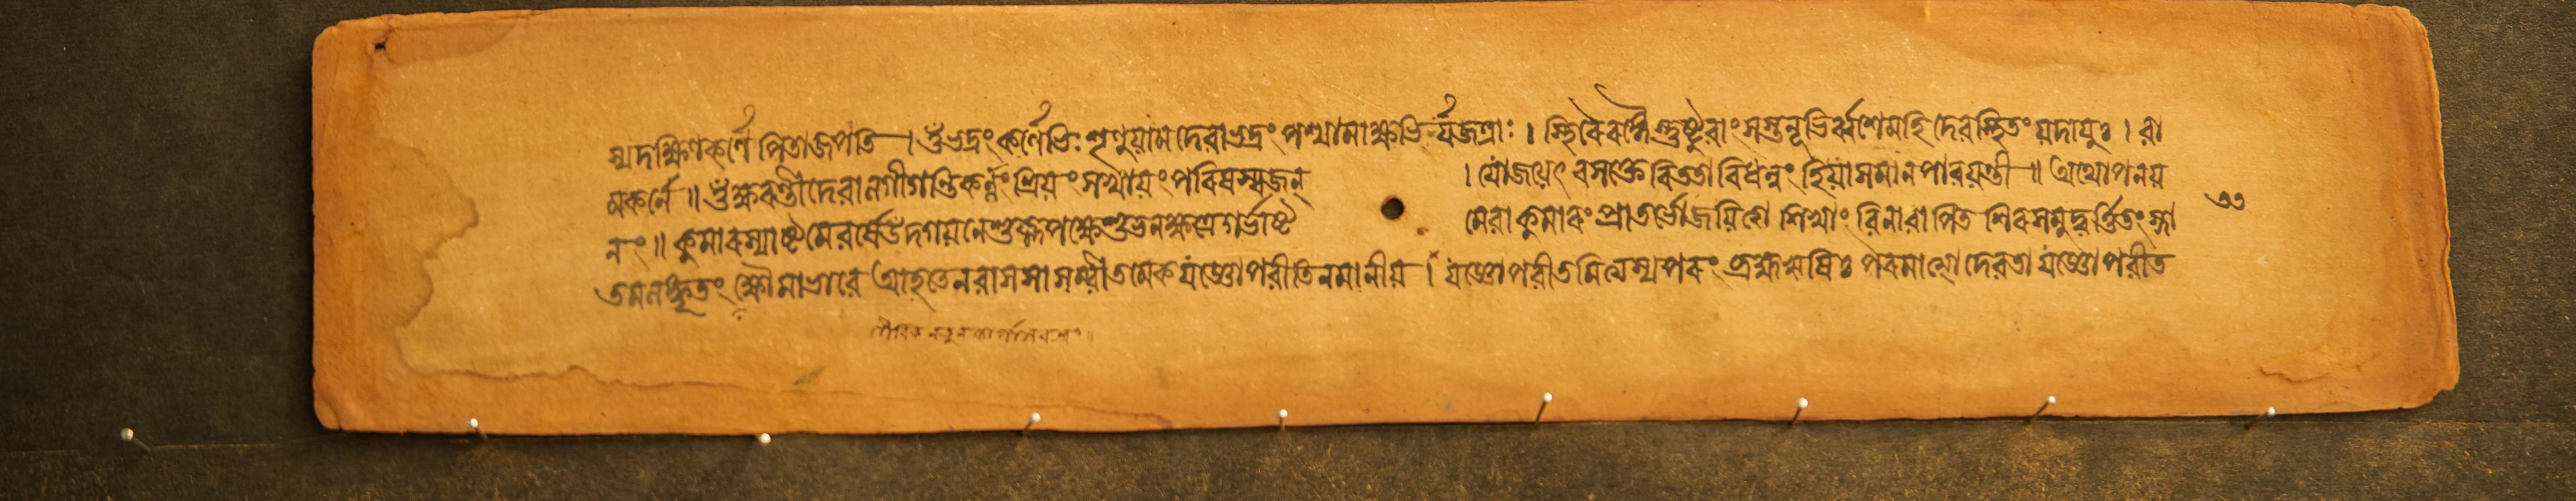 স্যদক্ষিণকর্ণে পিতাজপতি । ওঁভদ্রং কর্ণেভিঃ শৃণুয়াম দেৱাভদ্রং পশ্যামাক্ষভি র্যজত্রাঃ । স্থিৰৈৰঙ্গৈস্তুষ্টুৱাং সস্তনূভি র্ব্যশেমহি দেৱহিতং য়দায়ুঃ । ৱা
মকর্নে ॥ ওঁক্ষৰন্তীদেৱানগীগন্তিকর্ন্নং প্রিয়ং সখায়ং পৰিষস্বজন্ । যোজয়েৎ ৰসঙ্ক্তে ৰিততা ৰিধন্বং হিয়াসমান পাৰয়ন্তী ॥ অথোপনয়
নং ॥ কুমাৰস্যাষ্টমেৱর্ষেউদগয়নেশুক্লপক্ষেশুভনক্ষত্রেগর্ভাষ্ট মেৱা কুমাৰং প্রাতর্ভোজয়িত্বা শিখাং ৱিনাৱাপিত শিৰসমুদ্বর্ত্তিতং স্না
তমলঙ্কৃতং ক্ষৌমাভাৱে আহতেনৱাসসা সম্বীতমেক যজ্ঞোপৱীতিনমানীয় । যজ্ঞোপৱীতমিত্যস্য পৰং ব্রহ্মঋষিঃ পৰমাত্মা দেৱতা যজ্ঞোপৱীত
৩৩